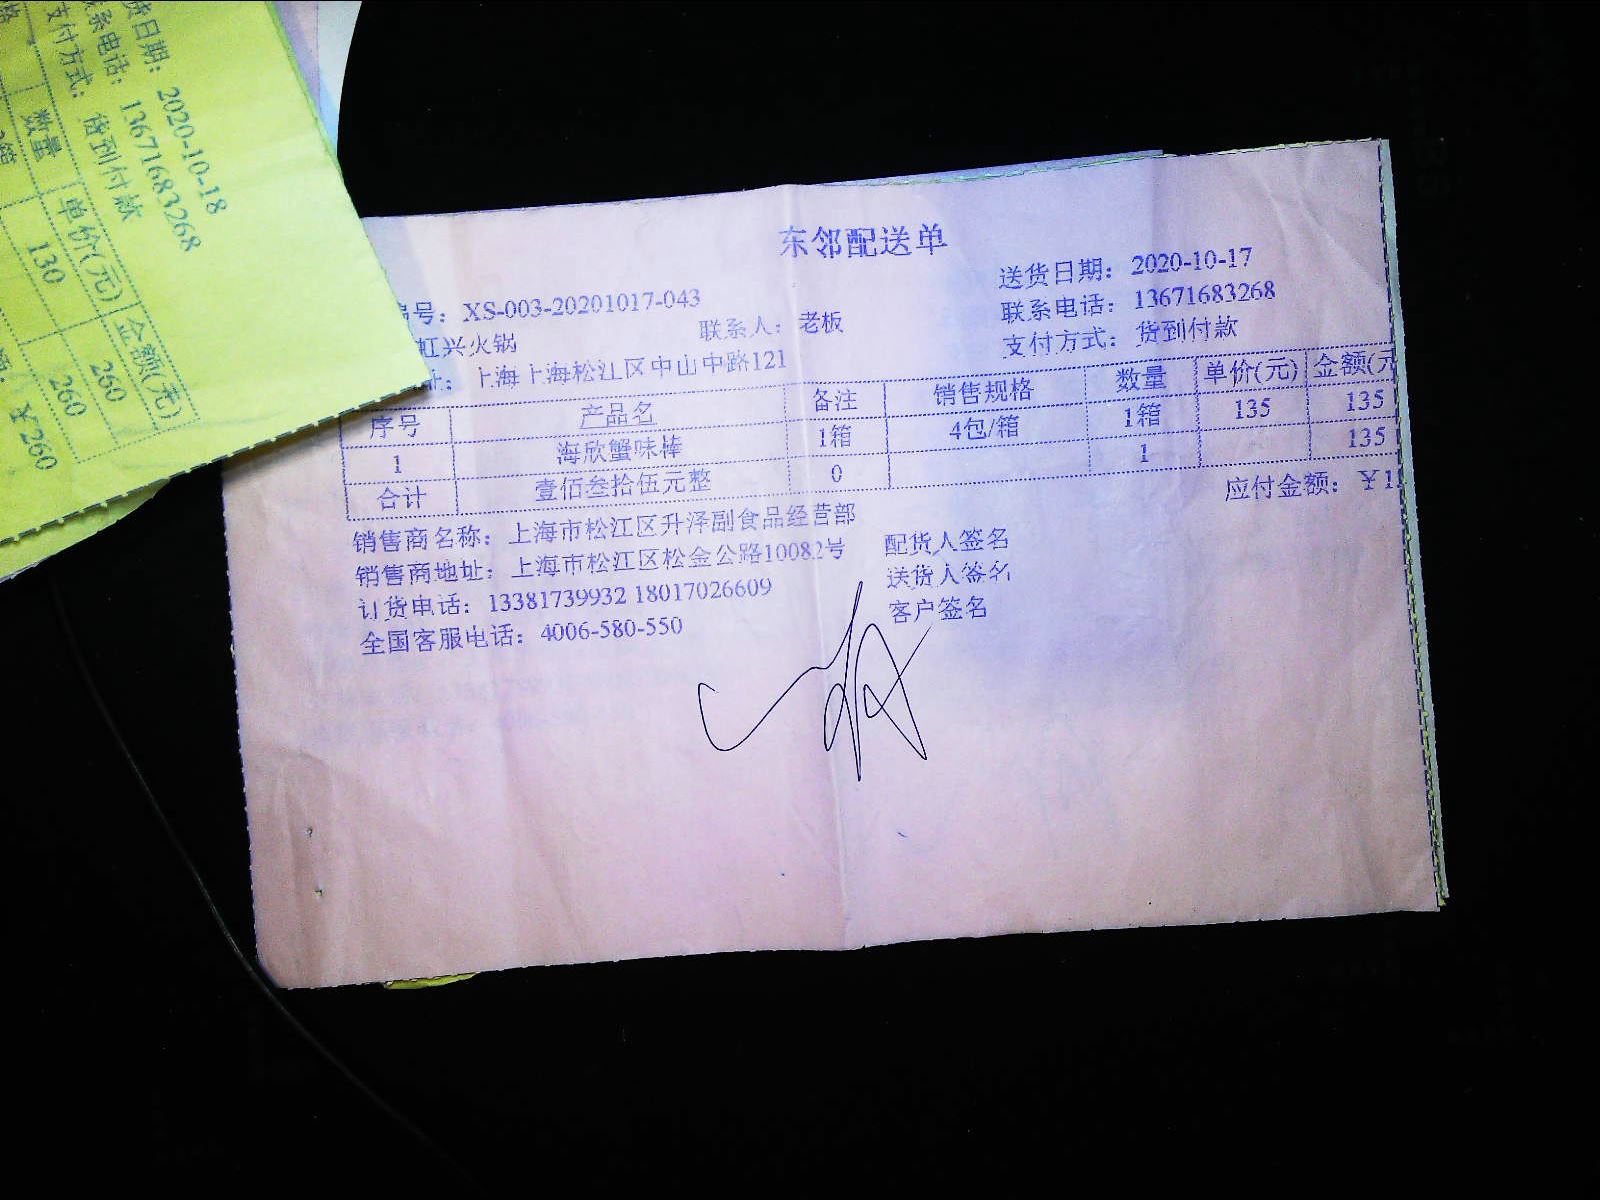 东邻配送单
编号：XS-003-20201017-043
送货日期：2020-10-17
虹兴火锅
联系人：老板
联系电话：13671683268
址：上海上海松江区中山中路121
支付方式：货到付款
序号 产品名 备注 销售规格 数量 单价(元) 金额(元
1 海欣蟹味棒 1箱 4包/箱 1箱 135 135
合计 壹佰叁拾伍元整 0 1 135
应付金额：￥1
销售商名称：上海市松江区升泽副食品经营部
销售商地址：上海市松江区松金公路10082号
订货电话：13381739932 18017026609
全国客服电话：4006-580-550
配货人签名
送货人签名
客户签名
货日期：2020-10-18
系电话：13671683268
支付方式：货到付款
数量 单价(元) 金额(元)
130 260
260
￥260